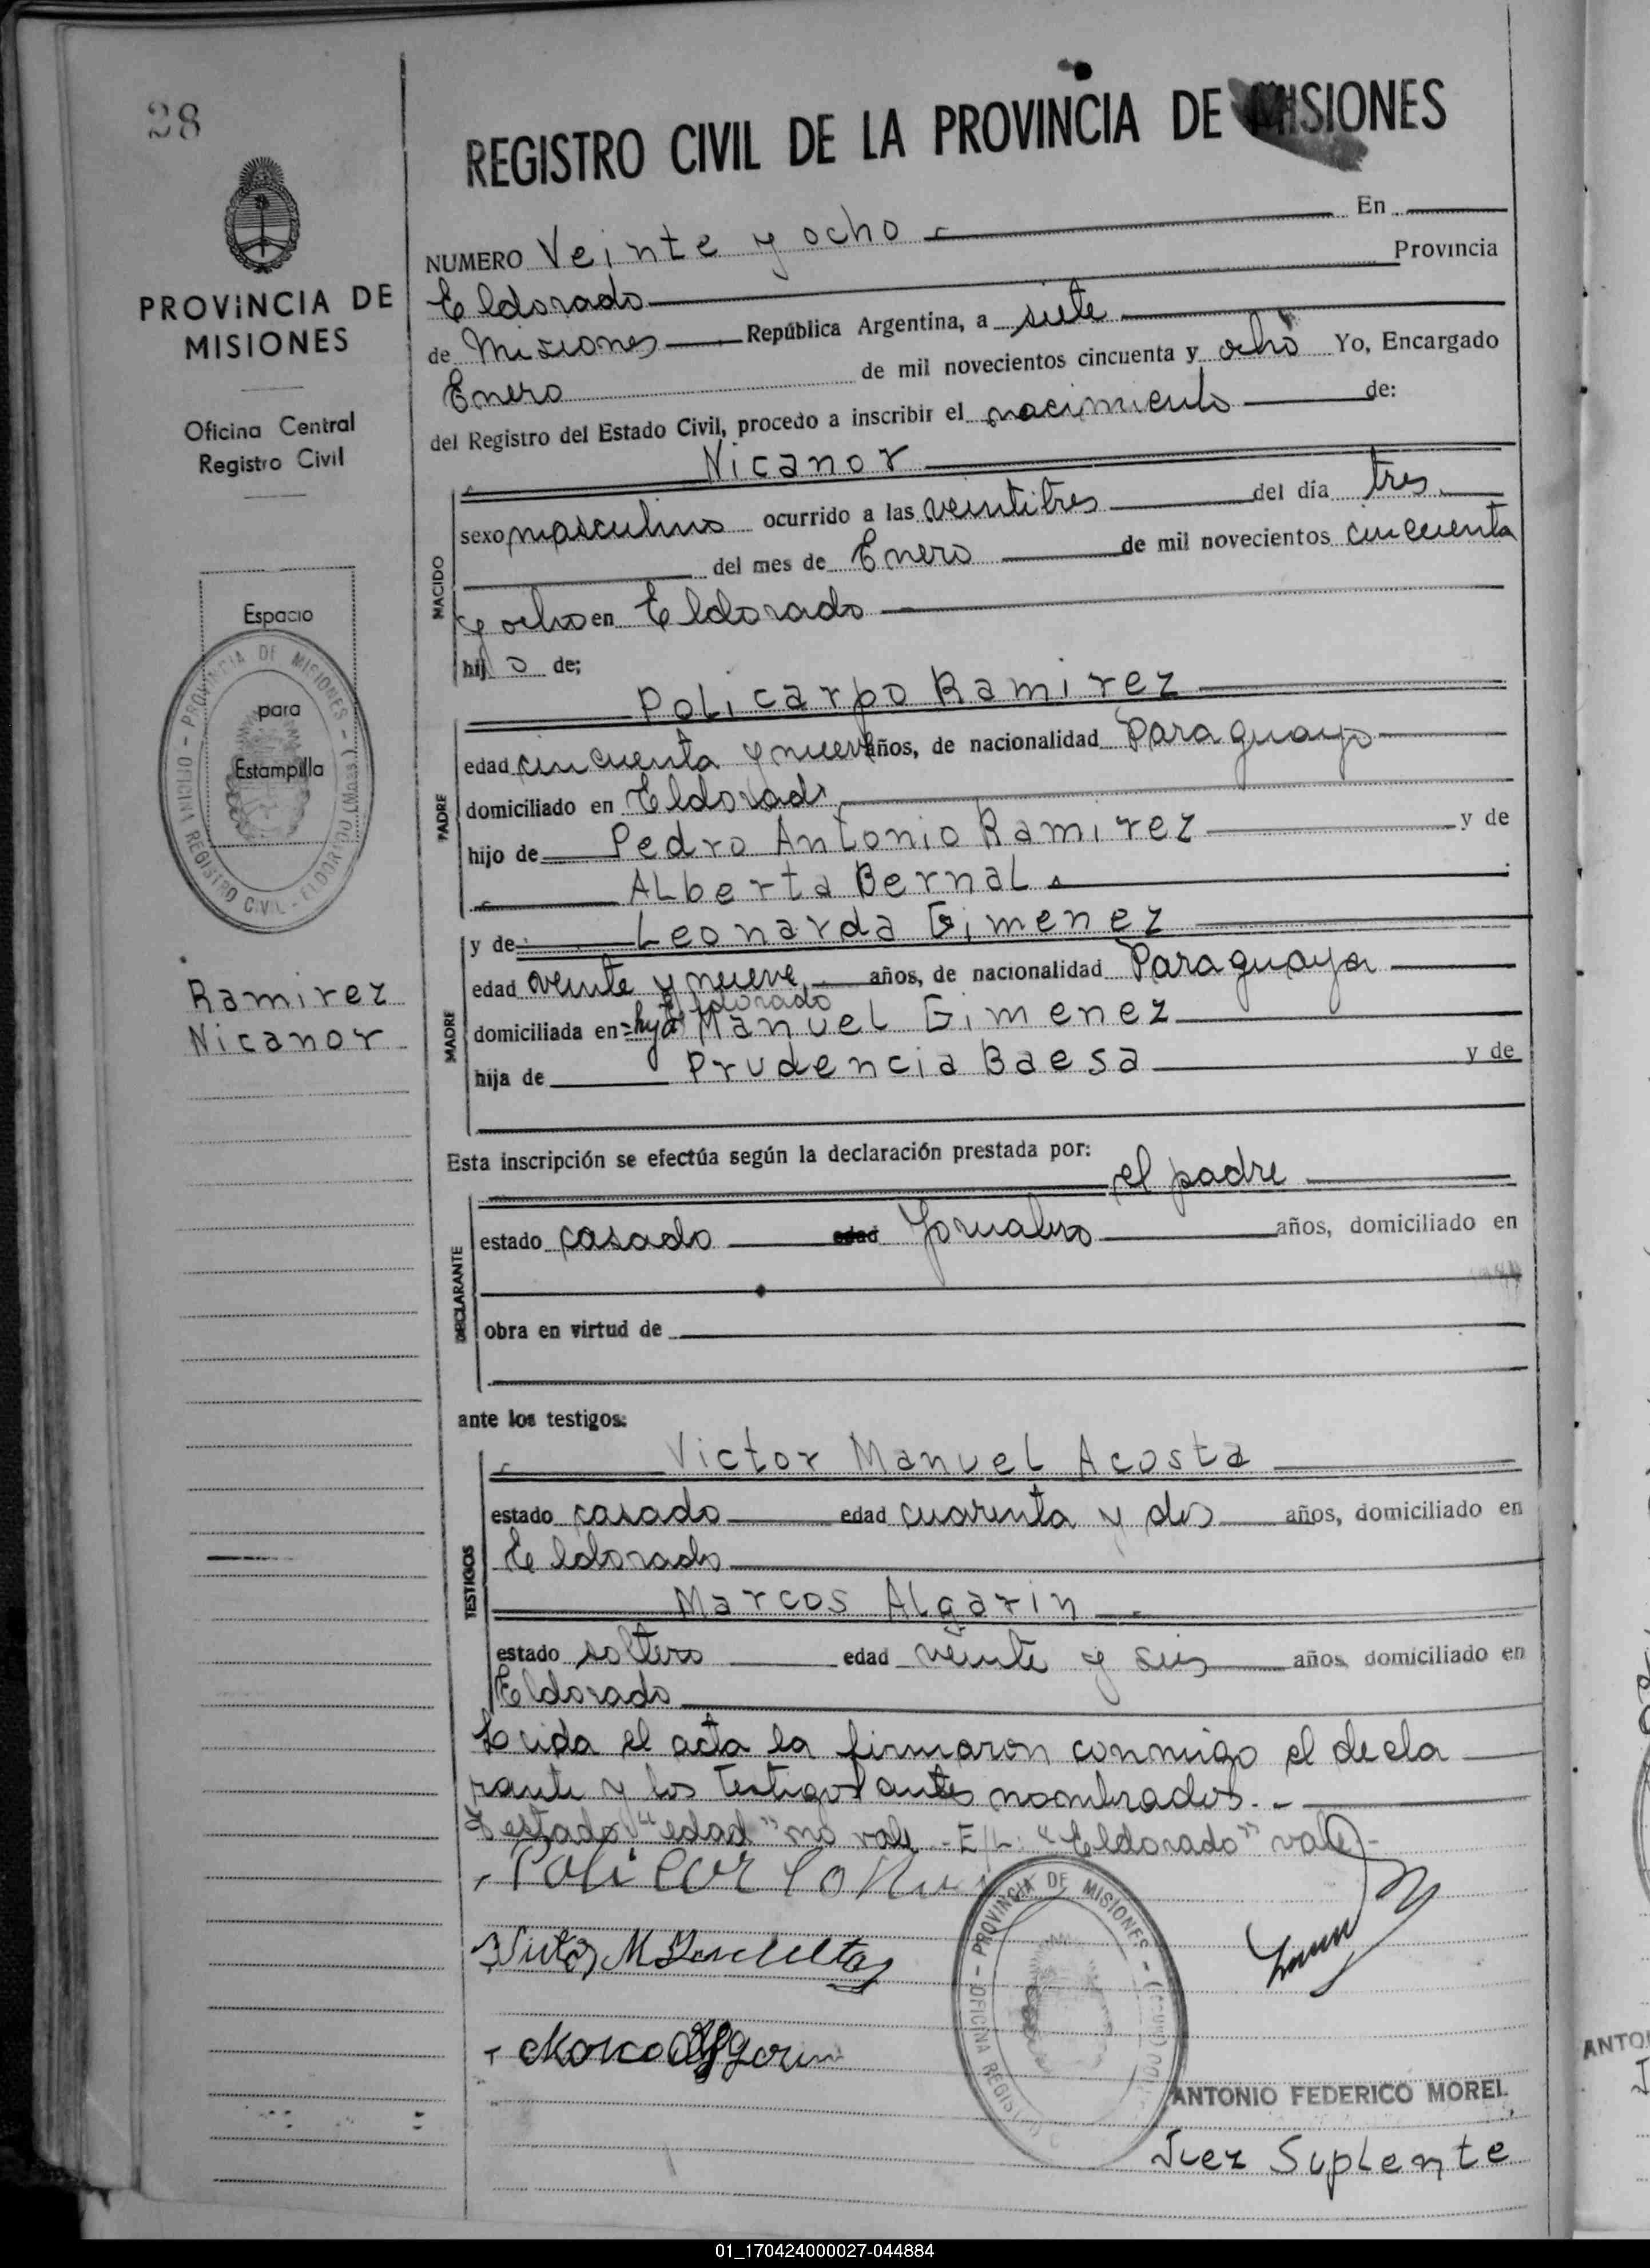 28
REGISTRO CIVIL DE LA PROVINCIA DE MISIONES
PROVINCIA DE
MISIONES
Oficina Central
Registro Civil
Espacio
para
Estampilla
OFICINA REGISTRO CIVIL - ELDORADO (Mnes.) - PROVINCIA DE MISIONES -
Ramirez
Nicanor
NUMERO Veinte y ocho En
Eldorado Provincia
de Misiones República Argentina, a siete
Enero de mil novecientos cincuenta y ocho Yo, Encargado
del Registro del Estado Civil, procedo a inscribir el nacimiento de:
Nicanor
NACIDO
sexo masculino ocurrido a las veintitres del día tres
del mes de Enero de mil novecientos cincuenta
y ocho en Eldorado
hij o de;
Policarpo Ramirez
PADRE
edad cincuenta y nueve años, de nacionalidad Paraguayo
domiciliado en Eldorado
hijo de Pedro Antonio Ramirez y de
Alberta Bernal
MADRE
y de Leonarda Gimenez
edad veinte y nueve años, de nacionalidad Paraguaya
Eldorado
domiciliada en hija Manuel Gimenez
hija de Prudencia Baesa y de
Esta inscripción se efectúa según la declaración prestada por:
el padre
DECLARANTE
estado casado edad Jornalero años, domiciliado en
obra en virtud de
ante los testigos:
TESTIGOS
Victor Manuel Acosta
estado casado edad cuarenta y dos años, domiciliado en
Eldorado
Marcos Algarin
estado soltero edad veinte y seis años domiciliado en
Eldorado
Leida el acta la firmaron conmigo el decla
rante y los testigos antes nombrados.-
Testado "edad" no vale - E/L: "Eldorado" vale-
OFICINA REGISTRO C - PROVINCIA DE MISIONES -
ANTONIO FEDERICO MOREL
Juez Suplente
ANTO
01_170424000027-044884